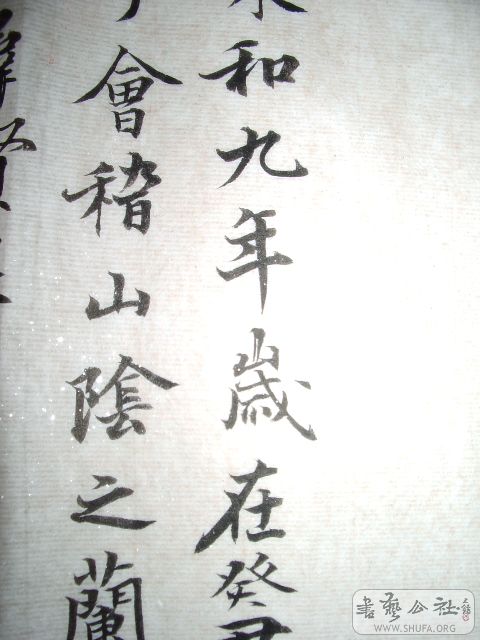 永和九年歲在癸丑
于會稽山陰之蘭
群賢
書藝公社
WWW.SHUFA.ORG